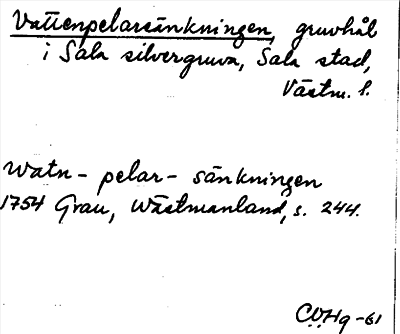 Vattenpelaresänkningen, gruvhål
i Sala silvergruva, Sala stad,
Västm. l.
Watn - pelar - sänkningen
1754 Grau, Wästmanland, s. 244.
CVHg -61